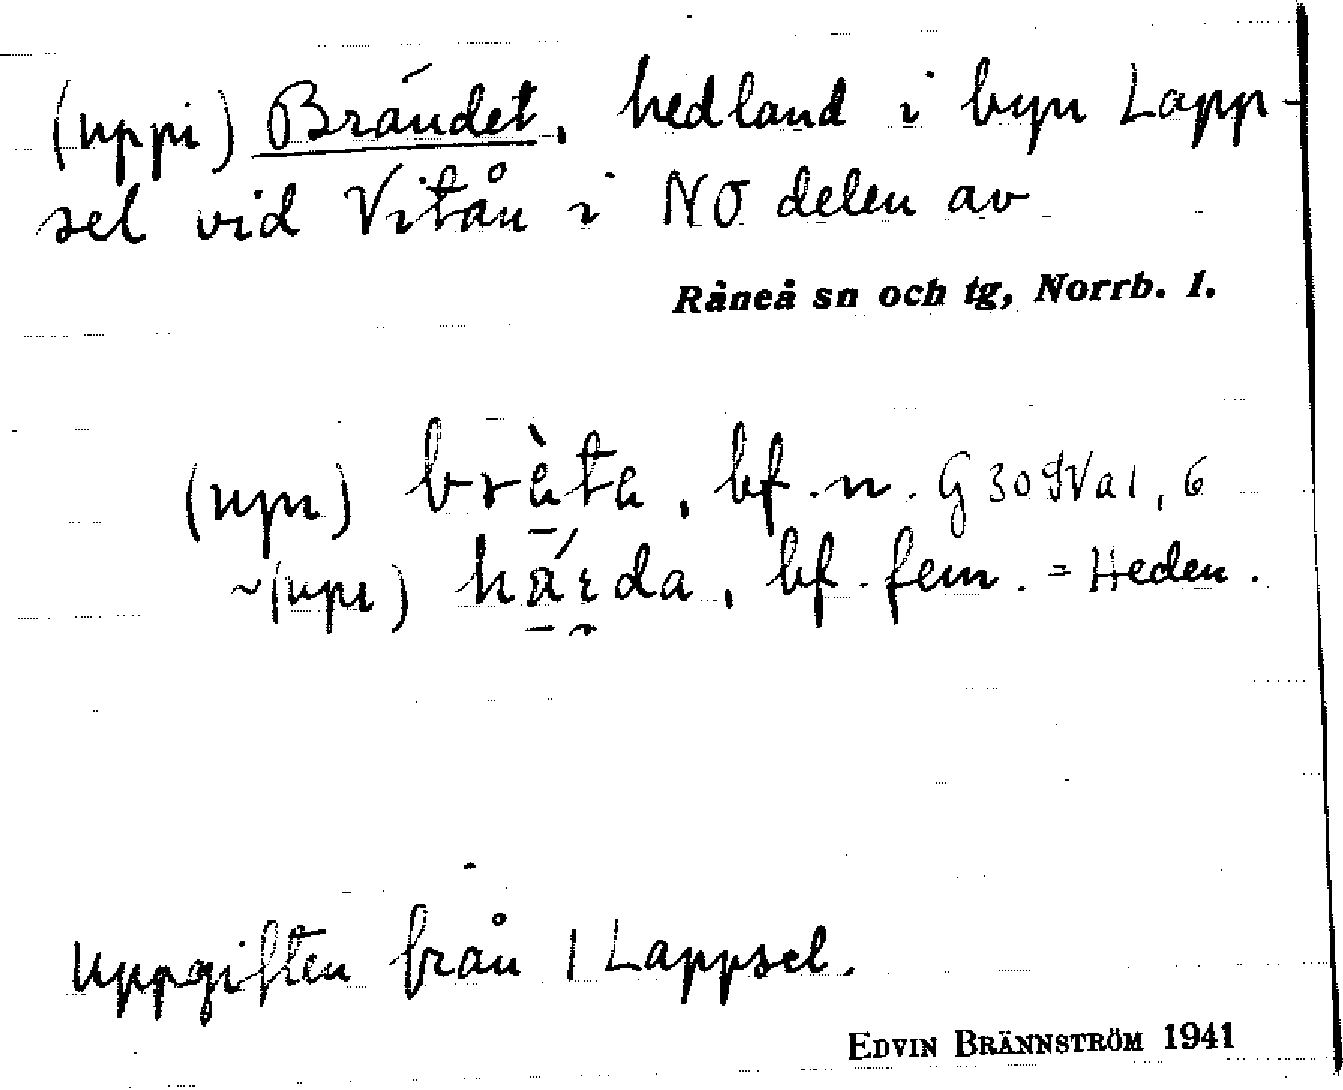 (uppi) Brändet, hedland i byn Lapp-
sel vid Vitån i NO delen av
Råneå sn och tg, Norrb. l.
(upı) brèta, bf. n. G 30 SV a 1, 6
~(upı) hárda, bf. fem. = Heden.
Uppgiften från 1 Lappsel.
EDVIN BRÄNNSTRÖM 1941